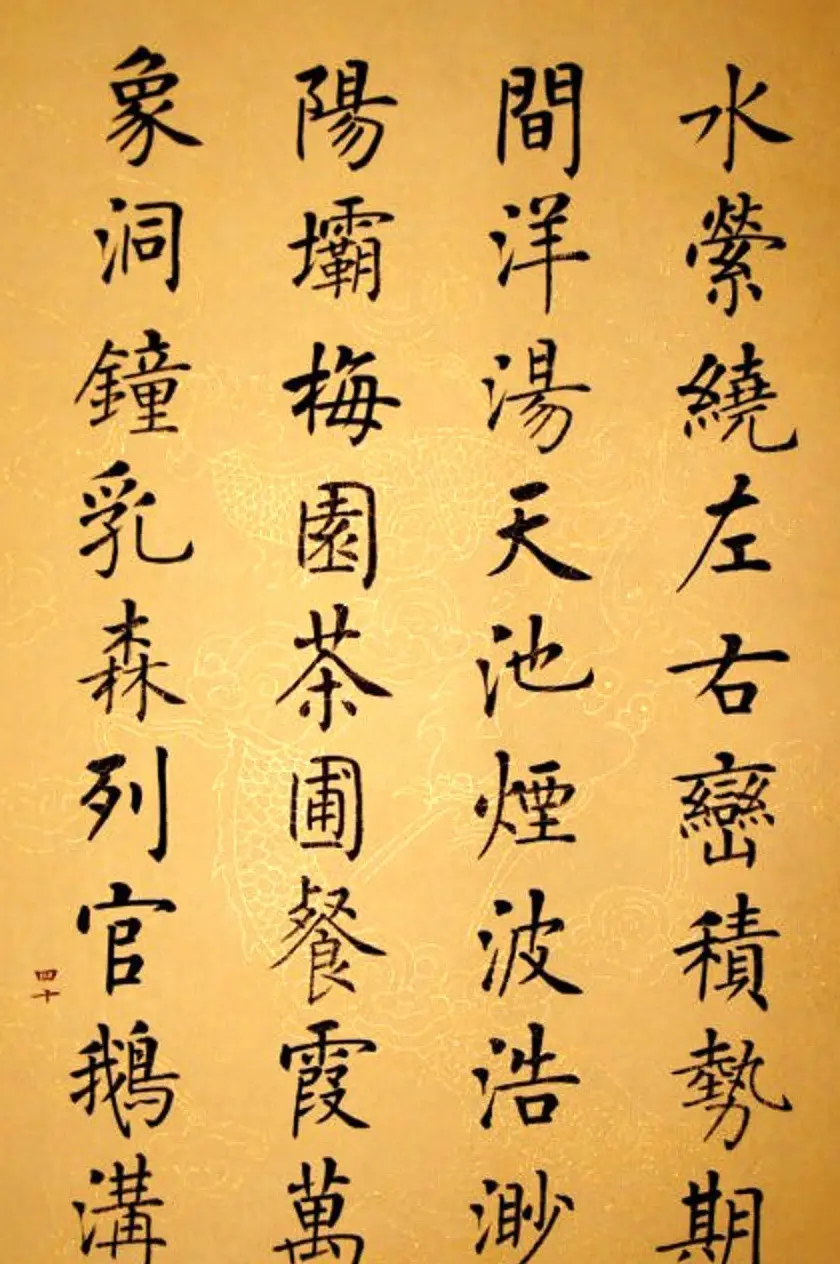 水縈繞左右巒積勢期
間洋湯天池煙波浩渺
陽壩梅園茶圃餐霞萬
象洞鐘乳森列官鵝溝
四十